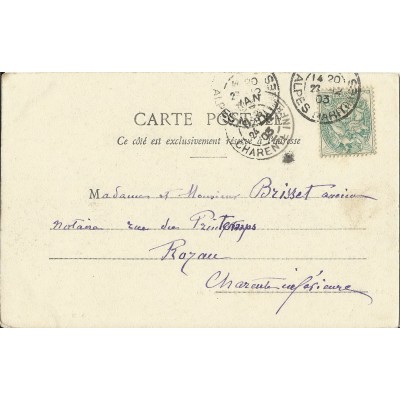 14 20
27 12
03
ALPES MARITIMES
CARTE POSTALE
24
03
CHARENTE INFRE
Ce côté est exclusivement réservé à l'adresse
Madames et Monsieur Brisset ancien
notaire rue des Printemps
Royan
Charente inférieure